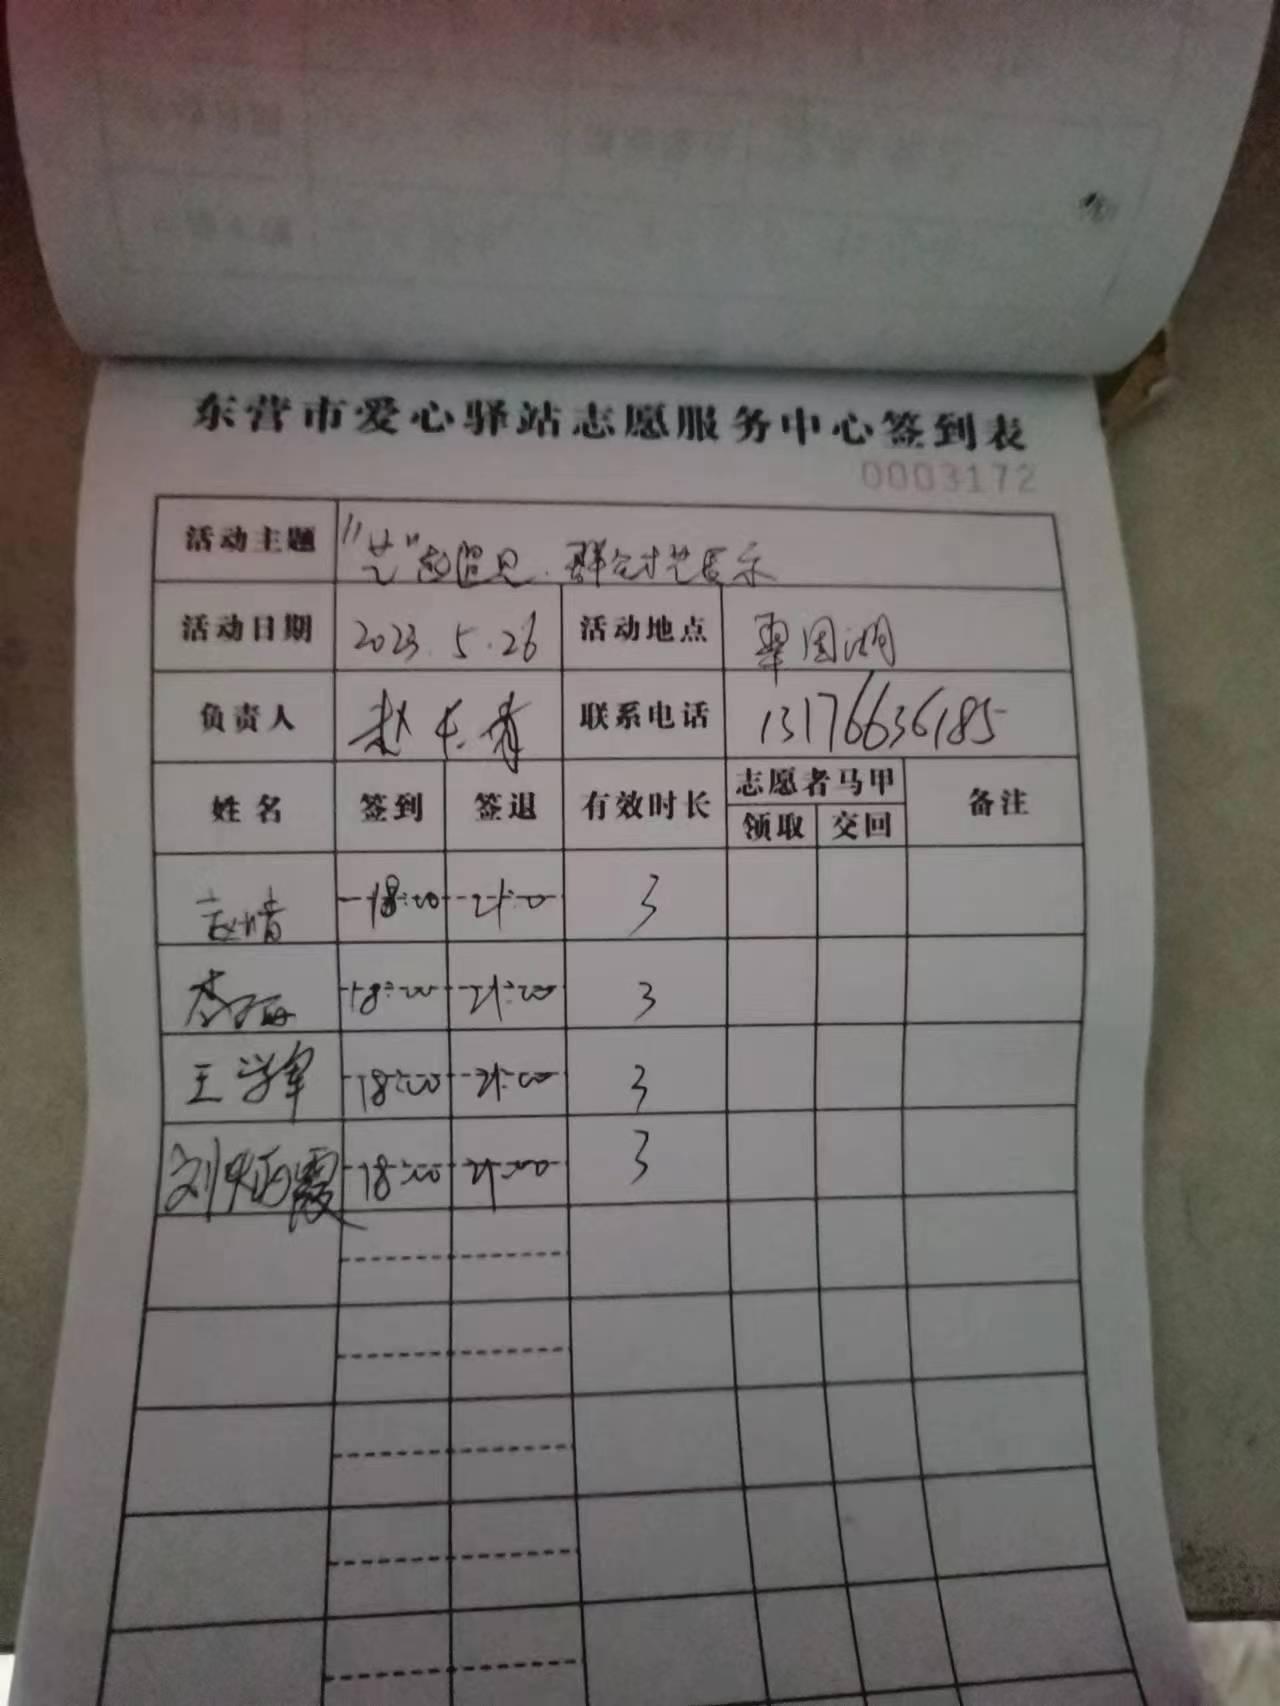 东营市爱心驿站志愿服务中心签到表
0003172
活动主题 "艺"起遇见.群众才艺展示
活动日期 2023.5.26 活动地点 翠园湖
负责人 赵 联系电话 13176636185
姓名 签到 签退 有效时长 志愿者马甲 备注
领取 交回
赵倩 18:00 21:0 3
李 18:00 21:00 3
王学军 18:00 21:00 3
刘炳霞 18:00 21:00 3